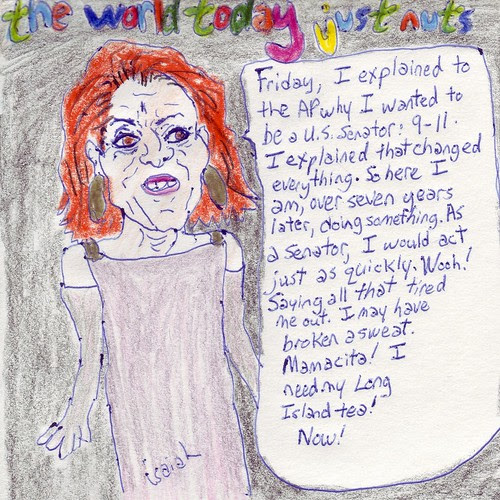 the world today just nuts
Friday, I explained to
the AP why I wanted to
be a U.S. Senator: 9-11.
I explained that changed
everything. So here I
am, over seven years
later, doing something. As
a senator, I would act
just as quickly. Wooh!
Saying all that tired
me out. I may have
broken a sweat.
Mamacita! I
need my Long
Island tea!
Now!
isaiah